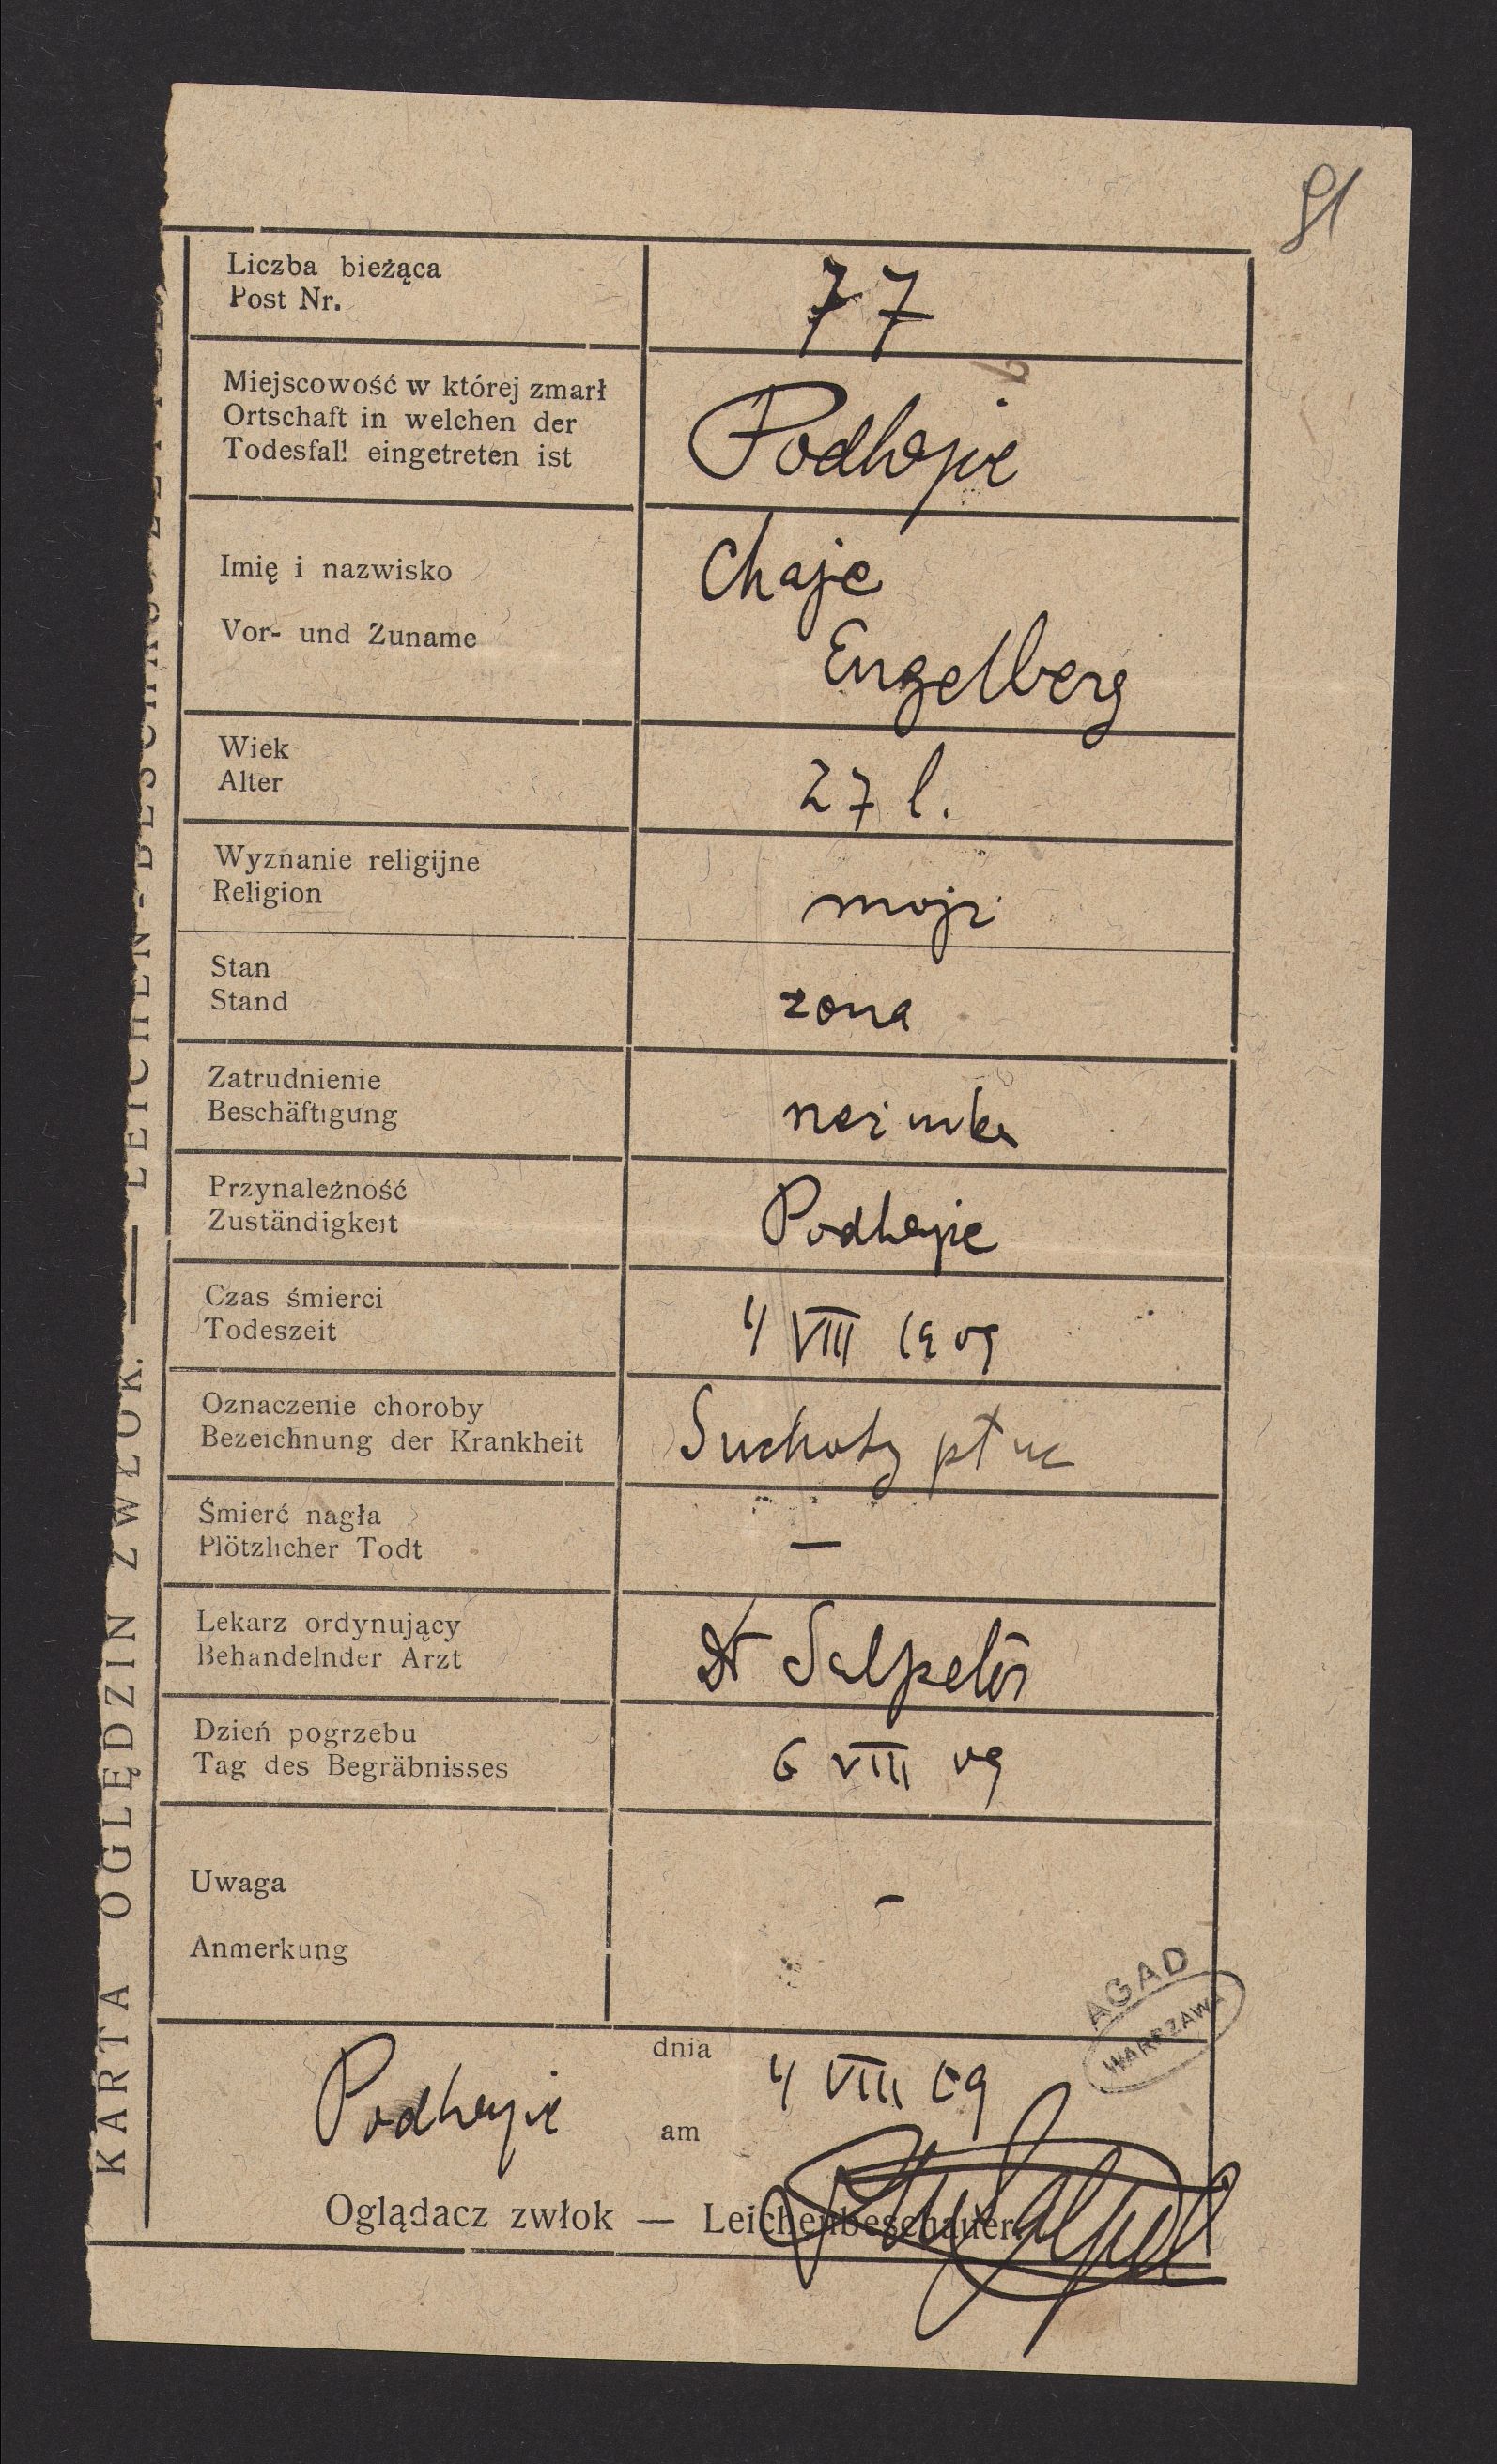 91
Liczba bieżąca
Post Nr.
77
Miejscowość w której zmarł
Ortschaft in welchen der
Todesfall eingetreten ist
Podhajce
Imię i nazwisko
Vor- und Zuname
Chaje
Engelberg
Wiek
Alter
27 l.
Wyznanie religijne
Religion
mojż
Stan
Stand
zona
Zatrudnienie
Beschäftigung
Przynależność
Zuständigkeit
Podhajce
Czas śmierci
Todeszeit
4 VIII 1909
Oznaczenie choroby
Bezeichnung der Krankheit
Suchoty płuc
Śmierć nagła
Plötzlicher Todt
—
Lekarz ordynujący
Behandelnder Arzt
Dr Salpeter
Dzień pogrzebu
Tag des Begräbnisses
6 VIII 09
Uwaga
Anmerkung
–
AGAD
WARSZAWA
Podhajce
dnia
am
4 VIII 09
Oglądacz zwłok — Leichenbeschauer
KARTA OGLĘDZIN ZWŁOK. — LEICHEN-BESCHAU